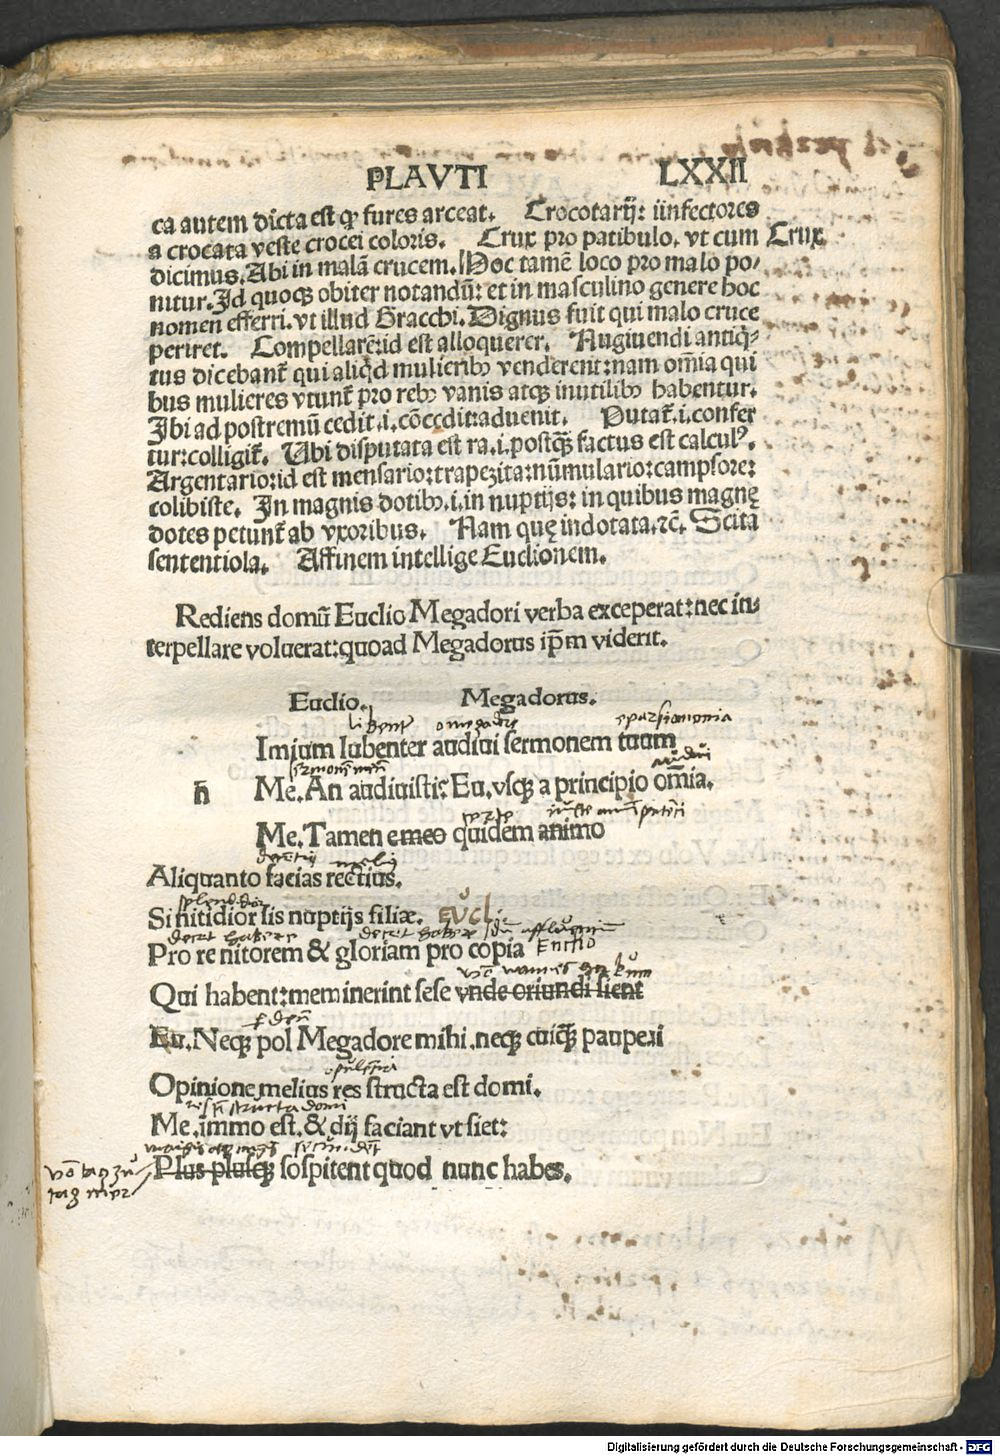 PLAVTI LXXII
ca autem dicta est qꝫ fures arceat. Crocotarij: iinfectores
a crocata veste crocei coloris. Crux pro patibulo. vt cum Crux
dicimus. Abi in malā crucem. Hoc tamē loco pro malo po⸗
nitur. Id quoqꝫ obiter notandū: et in masculino genere hoc
nomen efferri. vt illud Gracchi. Dignus fuit qui malo cruce
periret. Compellarē: id est alloquerer. Nugiuendi antiq̄⸗
tus dicebant̄ qui aliq̇d mulieribꝰ venderent: nam om̄ia qui
bus mulieres vtunt̄ pro rebꝰ vanis atqꝫ inutilibꝰ habentur.
Ibi ad postremū cedit .i. cōcedit: aduenit. Putat̄ .i. confer
tur: colligit̄. Ubi disputata est ra .i. postq̄ꝫ factus est calculꝰ.
Argentario: id est mensario: trapezita: nūmulario: campsore:
colibiste. In magnis dotibꝰ .i. in nuptijs: in quibus magnę
dotes petunt̄ ab vxoribus. Nam quę indotata. ꝛc̄. Scita
sententiola. Affinem intellige Euclionem.
Rediens domū Euclio Megadori verba exceperat: nec in⸗
terpellare voluerat: quoad Megadorus ip̄m viderit.
Euclio. Megadorus.
libenter o megadore
Imium lubenter audiui sermonem tuum
sermonem meū audiui
n̄ Me. An audiuisti: Eu. vsqꝫ a principio om̄ia.
certe
Me. Tamen e meo quidem animo
melius
Aliquanto facias rectius.
splendidior
Si nitidior sis nuptijs filiæ. EVCL
decet habere decet habere
Pro re nitorem & gloriam pro copia Euclio
Qui habent: meminerint sese vnde oriundi sient
Eu. Neqꝫ pol Megadore mihi. neqꝫ cuiq̄ꝫ pauperi
opulentia
Opinione melius res structa est domi.
structa domi
Me. immo est. & dij faciant vt siet:
Plus plusqꝫ sospitent quod nunc habes.
Digitalisierung gefördert durch die Deutsche Forschungsgemeinschaft - DFG